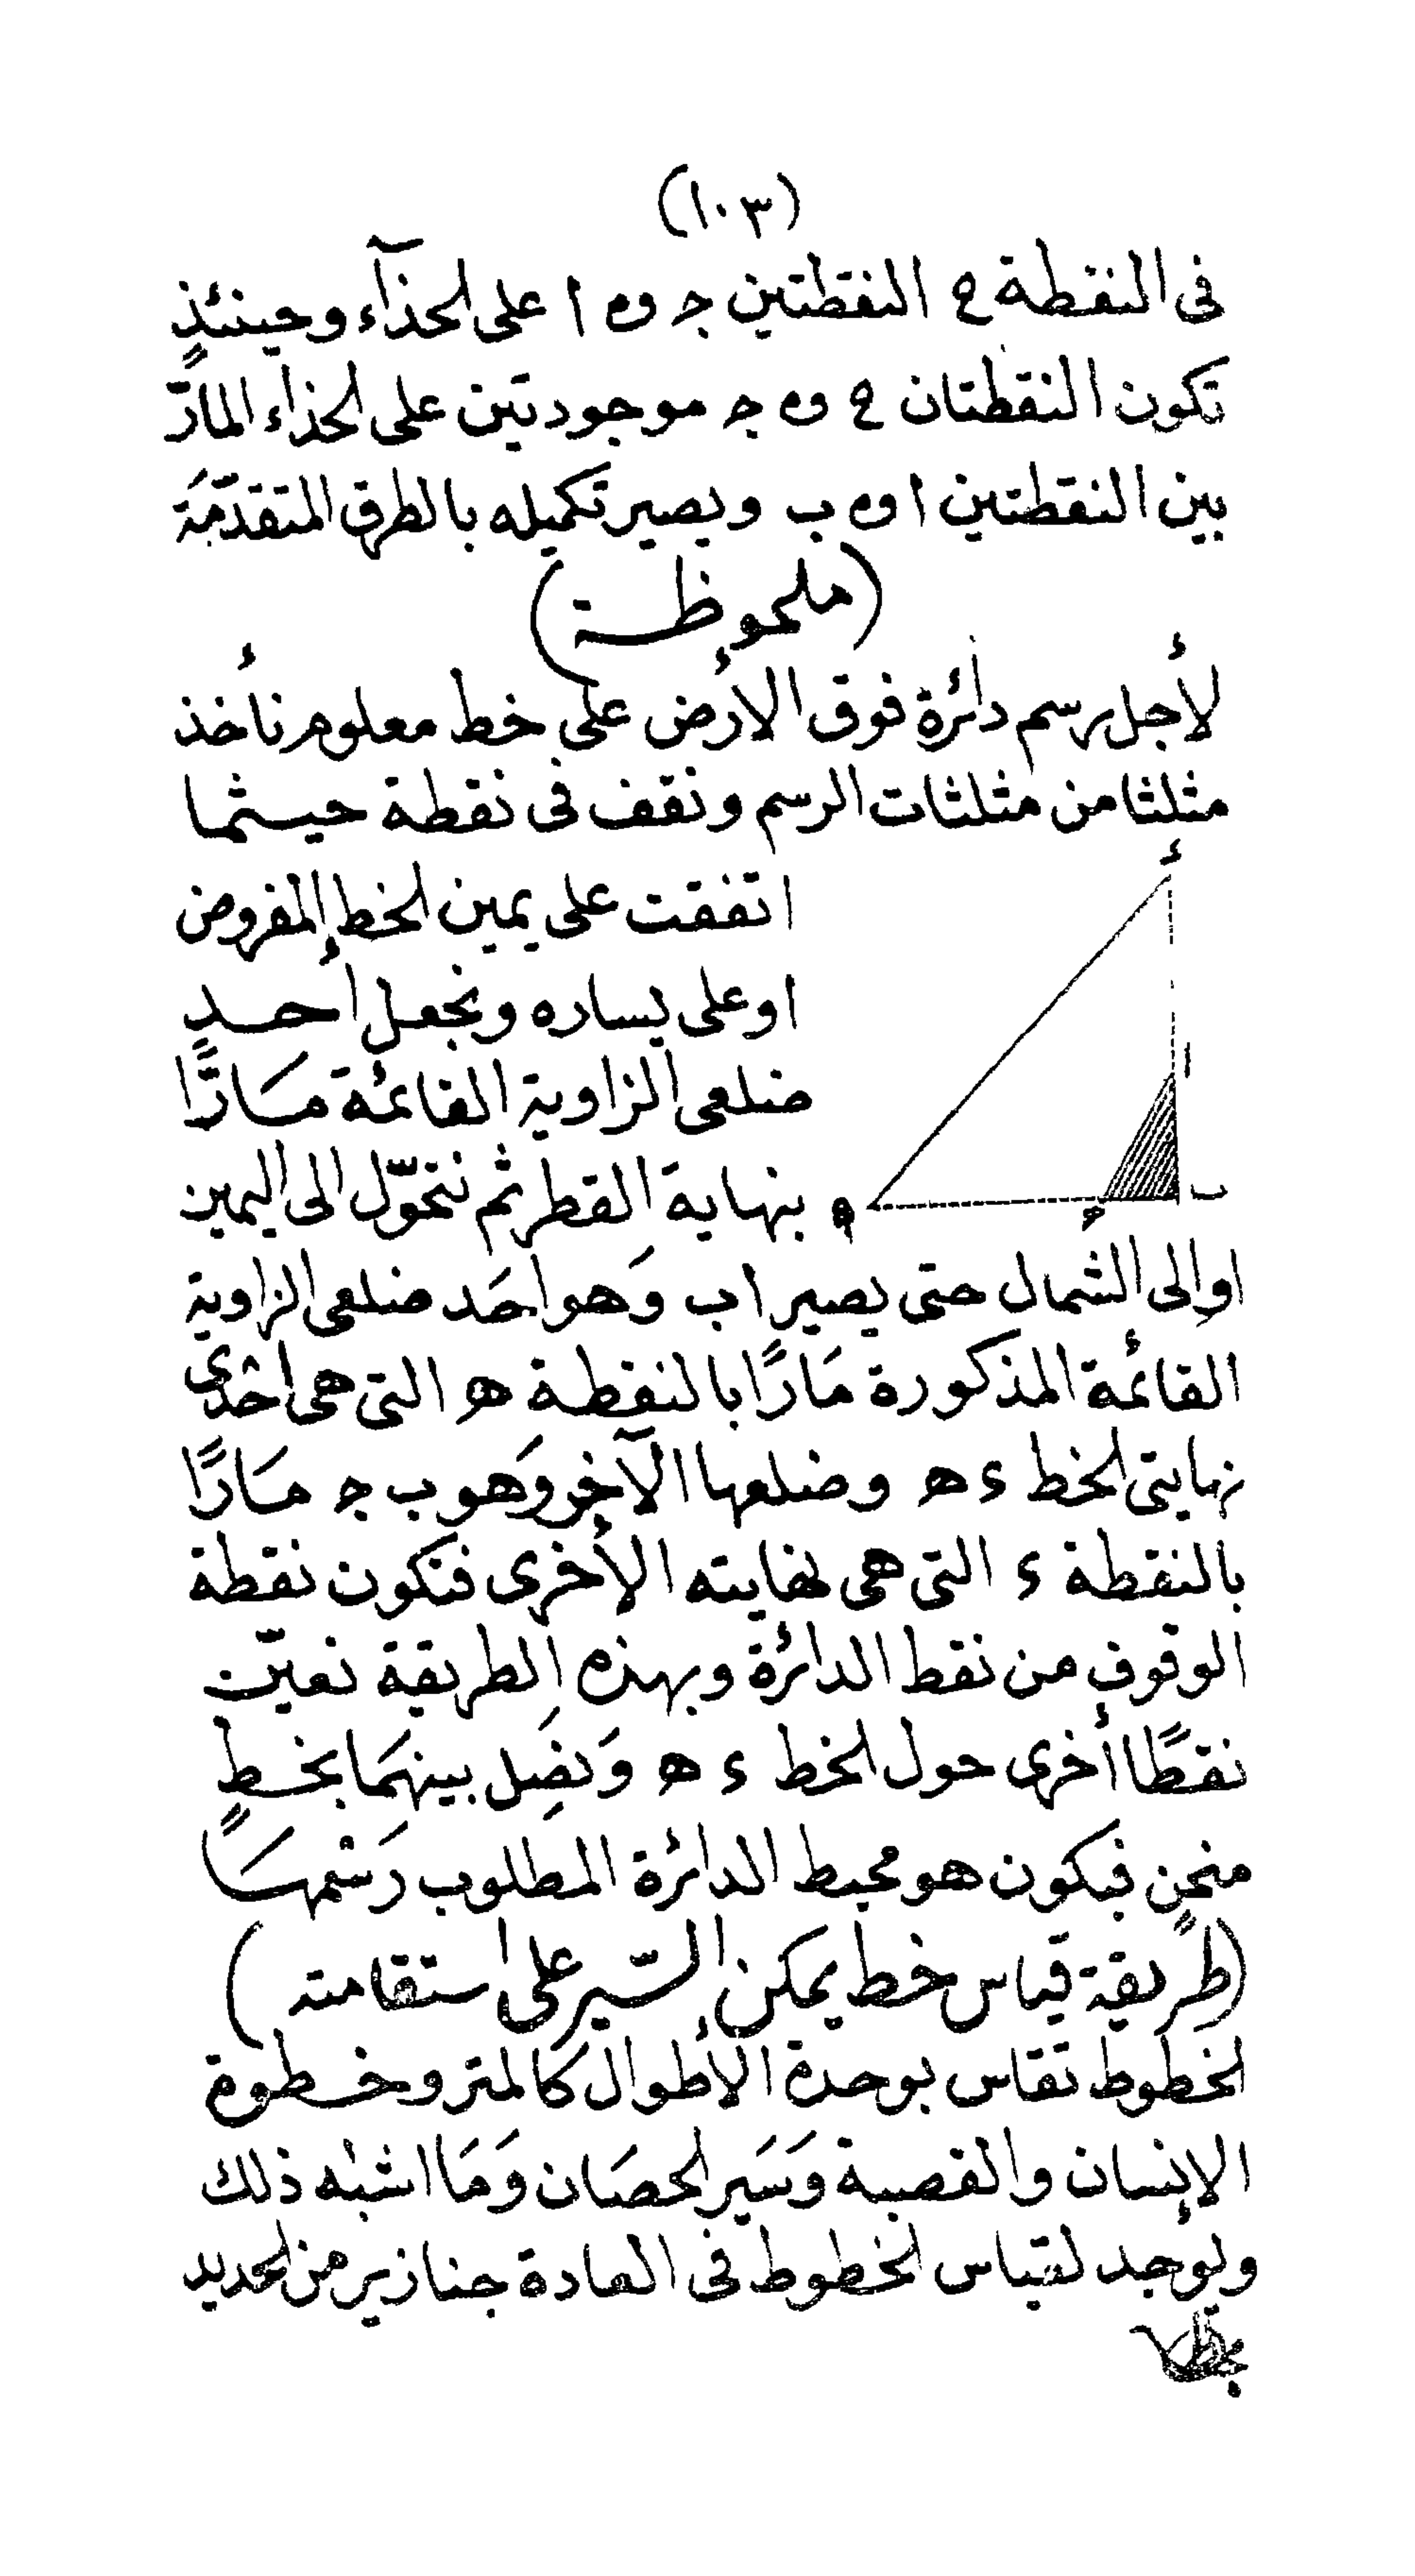 (١٠٣)
فى النقطة ح النقطتين ج و ا على الحذآء وحينئذٍ
تكون النقطتان ح و ج موجودتين على الحذاء المارّ
بين النقطتين ا و ب ويصير تكميله بالطرق المتقدّمَة
(ملحوظة)
لأجل رسم دائرة فوق الأرض على خط معلوم نأخذ
مثلثا من مثلثات الرسم ونقف فى نقطة حيثما
ء
اتفقت على يمين الخط المفروض
او على يساره ونجعل أحدٍ
ا
ضلعى الزاوية القائمة مَارًّا
بنهاية القطر ثم نتحوّل الى اليمين
ه
ج
ب
او إلى الشمال حتى يصير ا ب وَهو احَد ضلعى الزاوية
القائمة المذكورة مَارًا بالنقطة ه التى هى احْدى
نهايتى الخط ء ه وضلعها الآخر وَهو ب ج مَارًا
بالنقطة ء التى هى نهايته الأخرى فتكون نقطة
الوقوف من نقط الدائرة وبهذه الطريقة نعيّن
نقطًا أخرى حول الخط ء ه وَنصِل بينهَما بخطٍ
منحنٍ فيكون هو محيط الدائرة المطلوب رَسْمهَا
(طريقة قياس خط يمكن السّير على استقامته)
الخطوط تقاس بوحدة الأطوال كالمتر وخطوة
الإنسان والقصبة وَسَير الحصَان وَمَا اشبْه ذلك
ويوُجد لقياس الخطوط فى العادة جنازير من الحديد